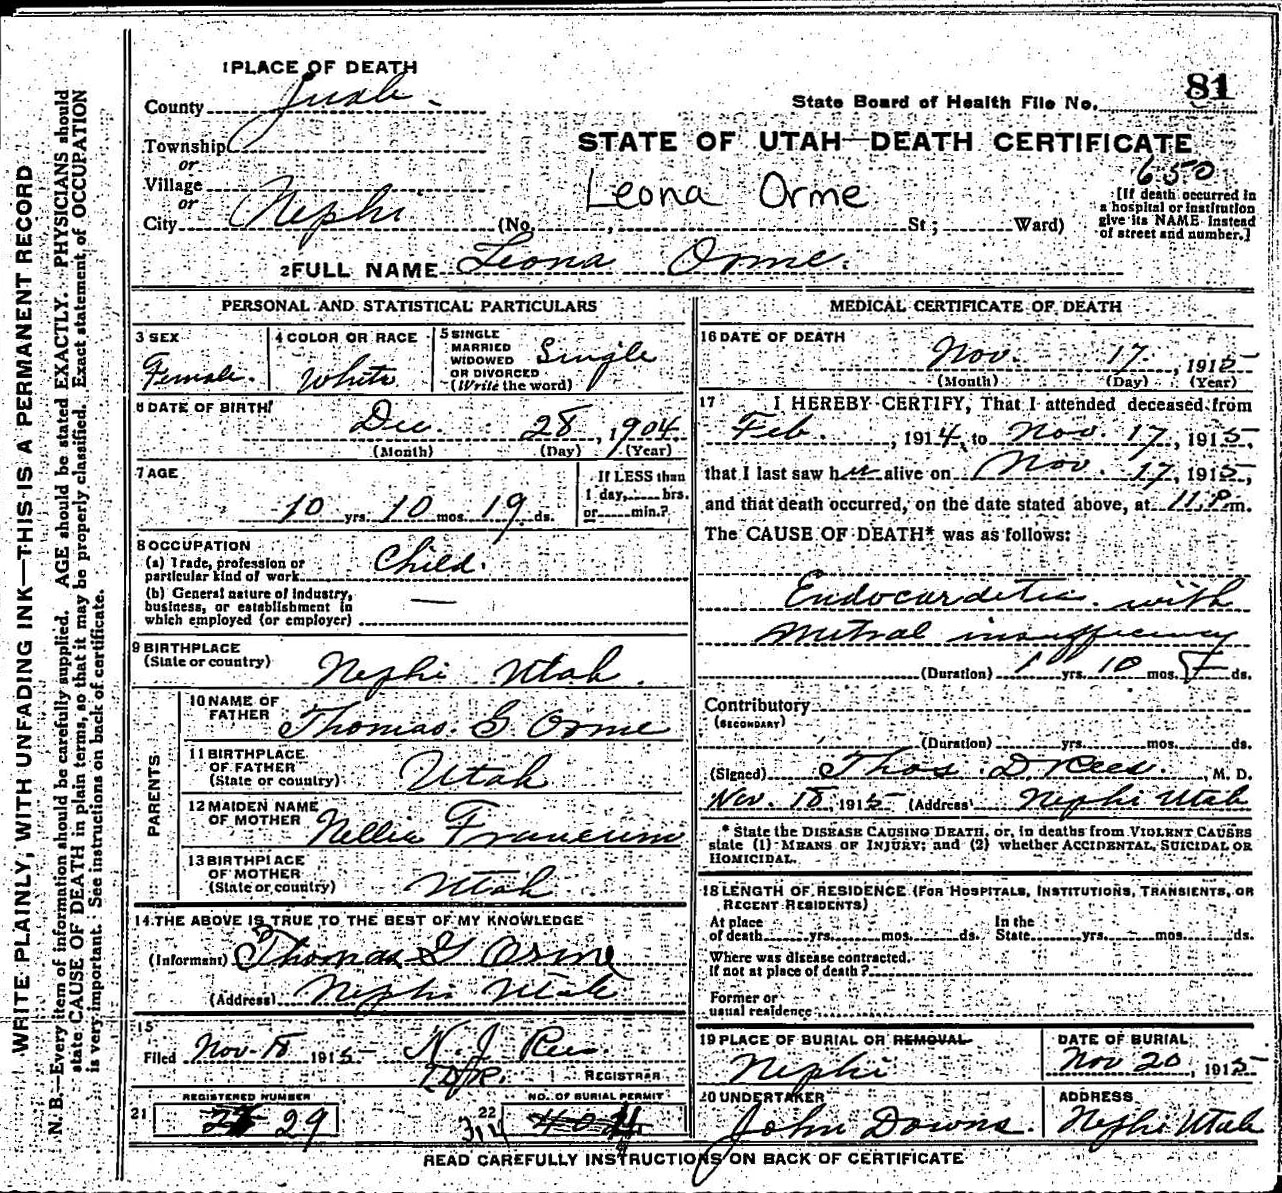 WRITE PLAINLY, WITH UNFADING INK—THIS IS A PERMANENT RECORD
N. B.—Every item of information should be carefully supplied. AGE should be stated EXACTLY. PHYSICIANS should
state CAUSE OF DEATH in plain terms, so that it may be properly classified. Exact statement of OCCUPATION
is very important. See instructions on back of certificate.
1 PLACE OF DEATH
County Juab
Township
or
Village
or
City Nephi (No. , St; Ward)
State Board of Health File No. 81
STATE OF UTAH—DEATH CERTIFICATE
650
Leona Orme
[If death occurred in
a hospital or institution
give its NAME instead
of street and number.]
2 FULL NAME Leona Orme.
PERSONAL AND STATISTICAL PARTICULARS
3 SEX
Female.
4 COLOR OR RACE
White
5 SINGLE
MARRIED
WIDOWED
OR DIVORCED
(Write the word)
Single
6 DATE OF BIRTH
Dec. 28, 1904
(Month) (Day) (Year)
7 AGE
10 yrs. 10 mos. 19 ds.
If LESS than
1 day, hrs.
or min.?
8 OCCUPATION
(a) Trade, profession or
particular kind of work Child.
(b) General nature of industry,
business, or establishment in
which employed (or employer) —
9 BIRTHPLACE
(State or country) Nephi Utah.
PARENTS
10 NAME OF
FATHER Thomas. G. Orme
11 BIRTHPLACE
OF FATHER
(State or country) Utah
12 MAIDEN NAME
OF MOTHER Nellie Francum
13 BIRTHPLACE
OF MOTHER
(State or country) Utah
14 THE ABOVE IS TRUE TO THE BEST OF MY KNOWLEDGE
(Informant) Thomas G Orme
(Address) Nephi Utah
15
Filed Nov. 18 1915 N. J. Rees
REGISTRAR
REGISTERED NUMBER
21 29
NO. OF BURIAL PERMIT
22 314
MEDICAL CERTIFICATE OF DEATH
16 DATE OF DEATH
Nov. 17, 1915
(Month) (Day) (Year)
17 I HEREBY CERTIFY, That I attended deceased from
Feb., 1914, to Nov. 17, 1915,
that I last saw her alive on Nov. 17, 1915,
and that death occurred, on the date stated above, at 11 P.m.
The CAUSE OF DEATH* was as follows:
Endocarditis with
mitral insufficiency
(Duration) 1 yrs. 10 mos. ds.
Contributory
(SECONDARY)
(Duration) yrs. mos. ds.
(Signed) Thos. D Rees., M. D.
Nov. 18, 1915 (Address) Nephi Utah
* State the DISEASE CAUSING DEATH, or, in deaths from VIOLENT CAUSES
state (1) MEANS OF INJURY; and (2) whether ACCIDENTAL, SUICIDAL OR
HOMICIDAL.
18 LENGTH OF RESIDENCE (FOR HOSPITALS, INSTITUTIONS, TRANSIENTS, OR
RECENT RESIDENTS)
At place
of death yrs. mos. ds.
In the
State yrs. mos. ds.
Where was disease contracted.
if not at place of death?
Former or
usual residence
19 PLACE OF BURIAL OR REMOVAL
Nephi
DATE OF BURIAL
Nov 20, 1915
20 UNDERTAKER
John Downs.
ADDRESS
Nephi Utah
READ CAREFULLY INSTRUCTIONS ON BACK OF CERTIFICATE